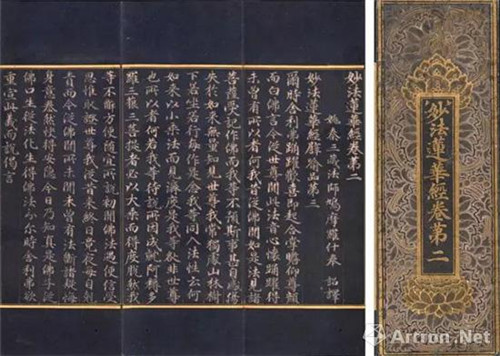 妙法蓮華經卷第二
姚秦三藏法師鳩摩羅什奉 詔譯
妙法蓮華經譬喻品第三
爾時舍利弗踊躍歡喜即起合掌瞻仰尊顏
而白佛言今從世尊聞此法音心懷踊躍得
未曾有所以者何我昔從佛聞如是法見諸
菩薩受記作佛而我等不預斯事甚自感傷
失於如來無量知見世尊我常獨處山林樹
下若坐若行每作是念我等同入法性云何
如來以小乘法而見濟度是我等咎非世尊
也所以者何若我等待說所因成就阿耨多
羅三藐三菩提者必以大乘而得度脫然我
等不解方便隨宜所說初聞佛法遇便信受
思惟取證世尊我從昔來終日竟夜每自剋
責而今從佛聞所未聞未曾有法斷諸疑悔
身意泰然快得安隱今日乃知真是佛子從
佛口生從法化生得佛法分尔時舍利弗欲
重宣此義而說偈言
妙法蓮華經卷第二
Artron.Net